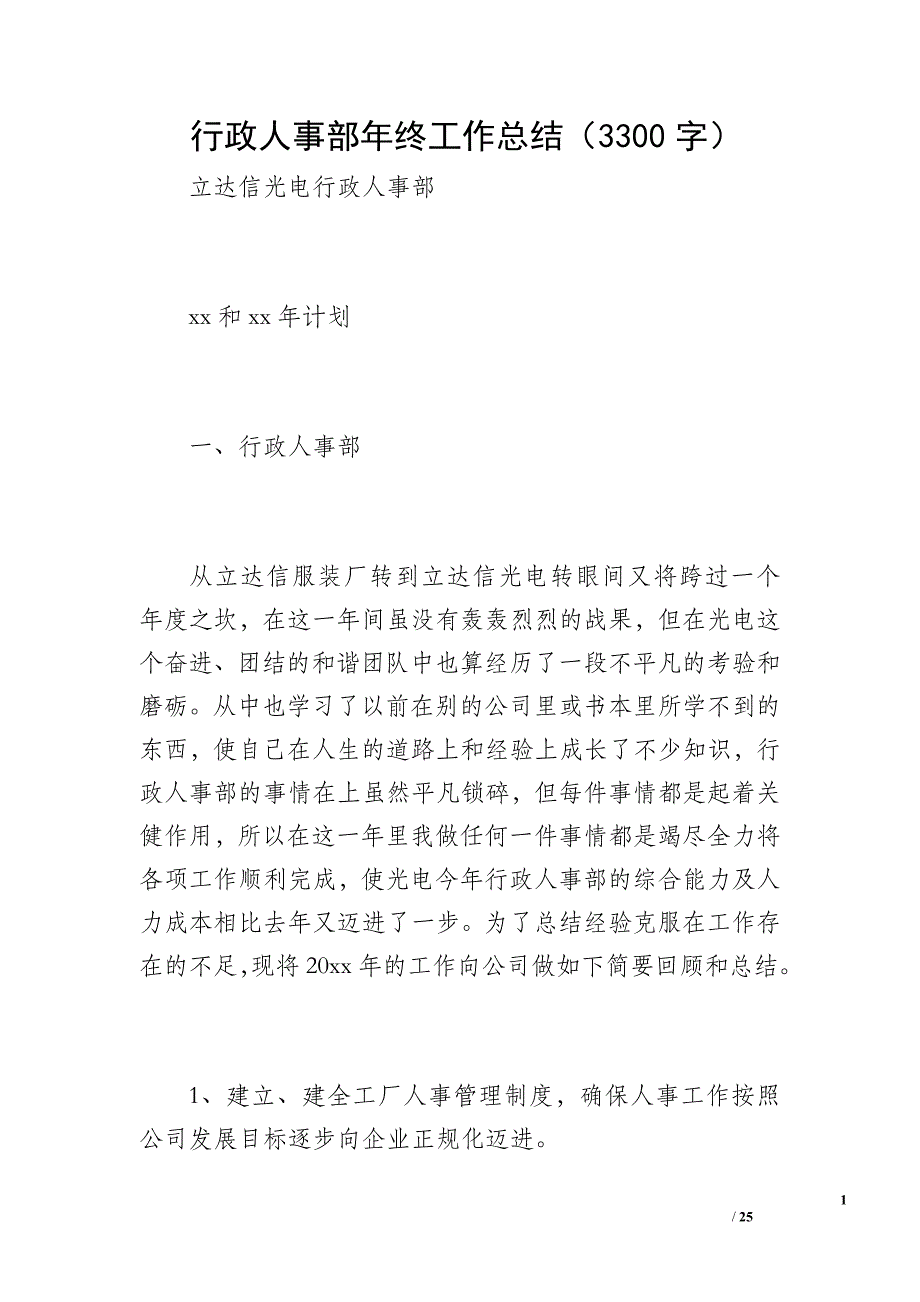 行政人事部年终工作总结（3300 字）
立达信光电行政人事部
xx 和 xx 年计划
一、行政人事部
从立达信服装厂转到立达信光电转眼间又将跨过一个
年度之坎，在这一年间虽没有轰轰烈烈的战果，但在光电这
个奋进、团结的和谐团队中也算经历了一段不平凡的考验和
磨砺。从中也学习了以前在别的公司里或书本里所学不到的
东西，使自己在人生的道路上和经验上成长了不少知识，行
政人事部的事情在上虽然平凡锁碎，但每件事情都是起着关
健作用，所以在这一年里我做任何一件事情都是竭尽全力将
各项工作顺利完成，使光电今年行政人事部的综合能力及人
力成本相比去年又迈进了一步。为了总结经验克服在工作存
在的不足,现将 20xx 年的工作向公司做如下简要回顾和总结。
1、建立、建全工厂人事管理制度，确保人事工作按照
公司发展目标逐步向企业正规化迈进。
1
/ 25